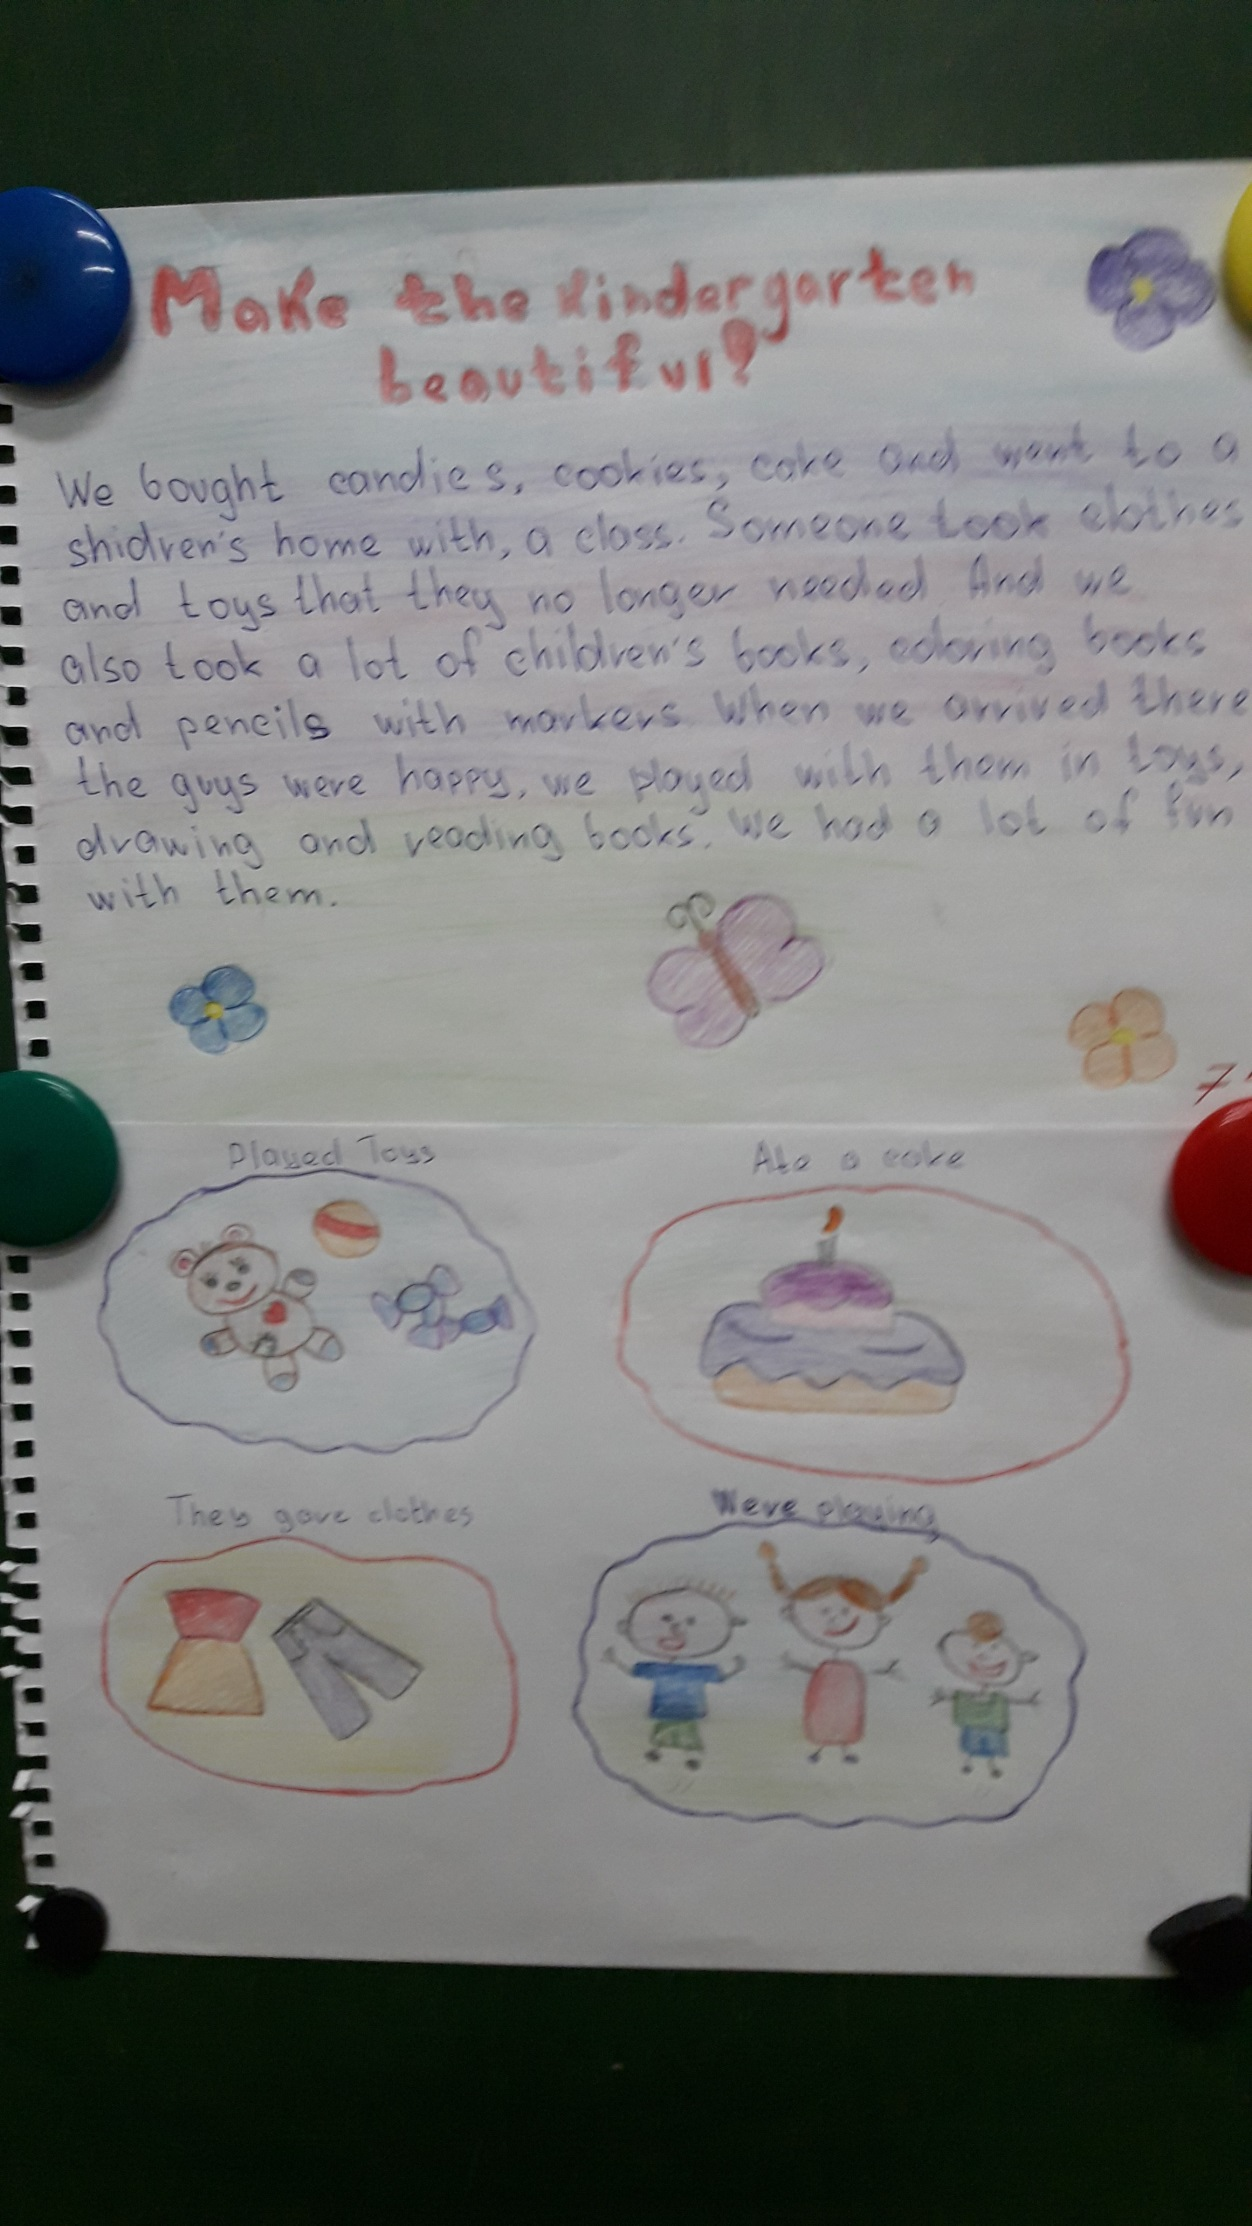 Make the kindergarten
beautiful!
We bought candies, cookies, cake and went to a
shidren's home with, a class. Someone took clothes
and toys that they no longer needed And we
also took a lot of children's books, coloring books
and pencils with markers When we arrived there
the guys were happy, we played with them in toys,
drawing and reading books. We had a lot of fun
with them.
7
Played Toys
Ate a cake
They gave clothes
Were playing